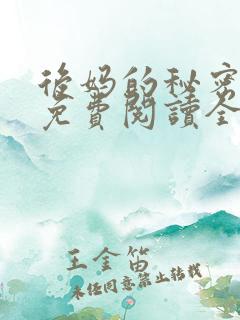 後妈的秘密
免費閱讀全
王金笛
未经同意禁止转载